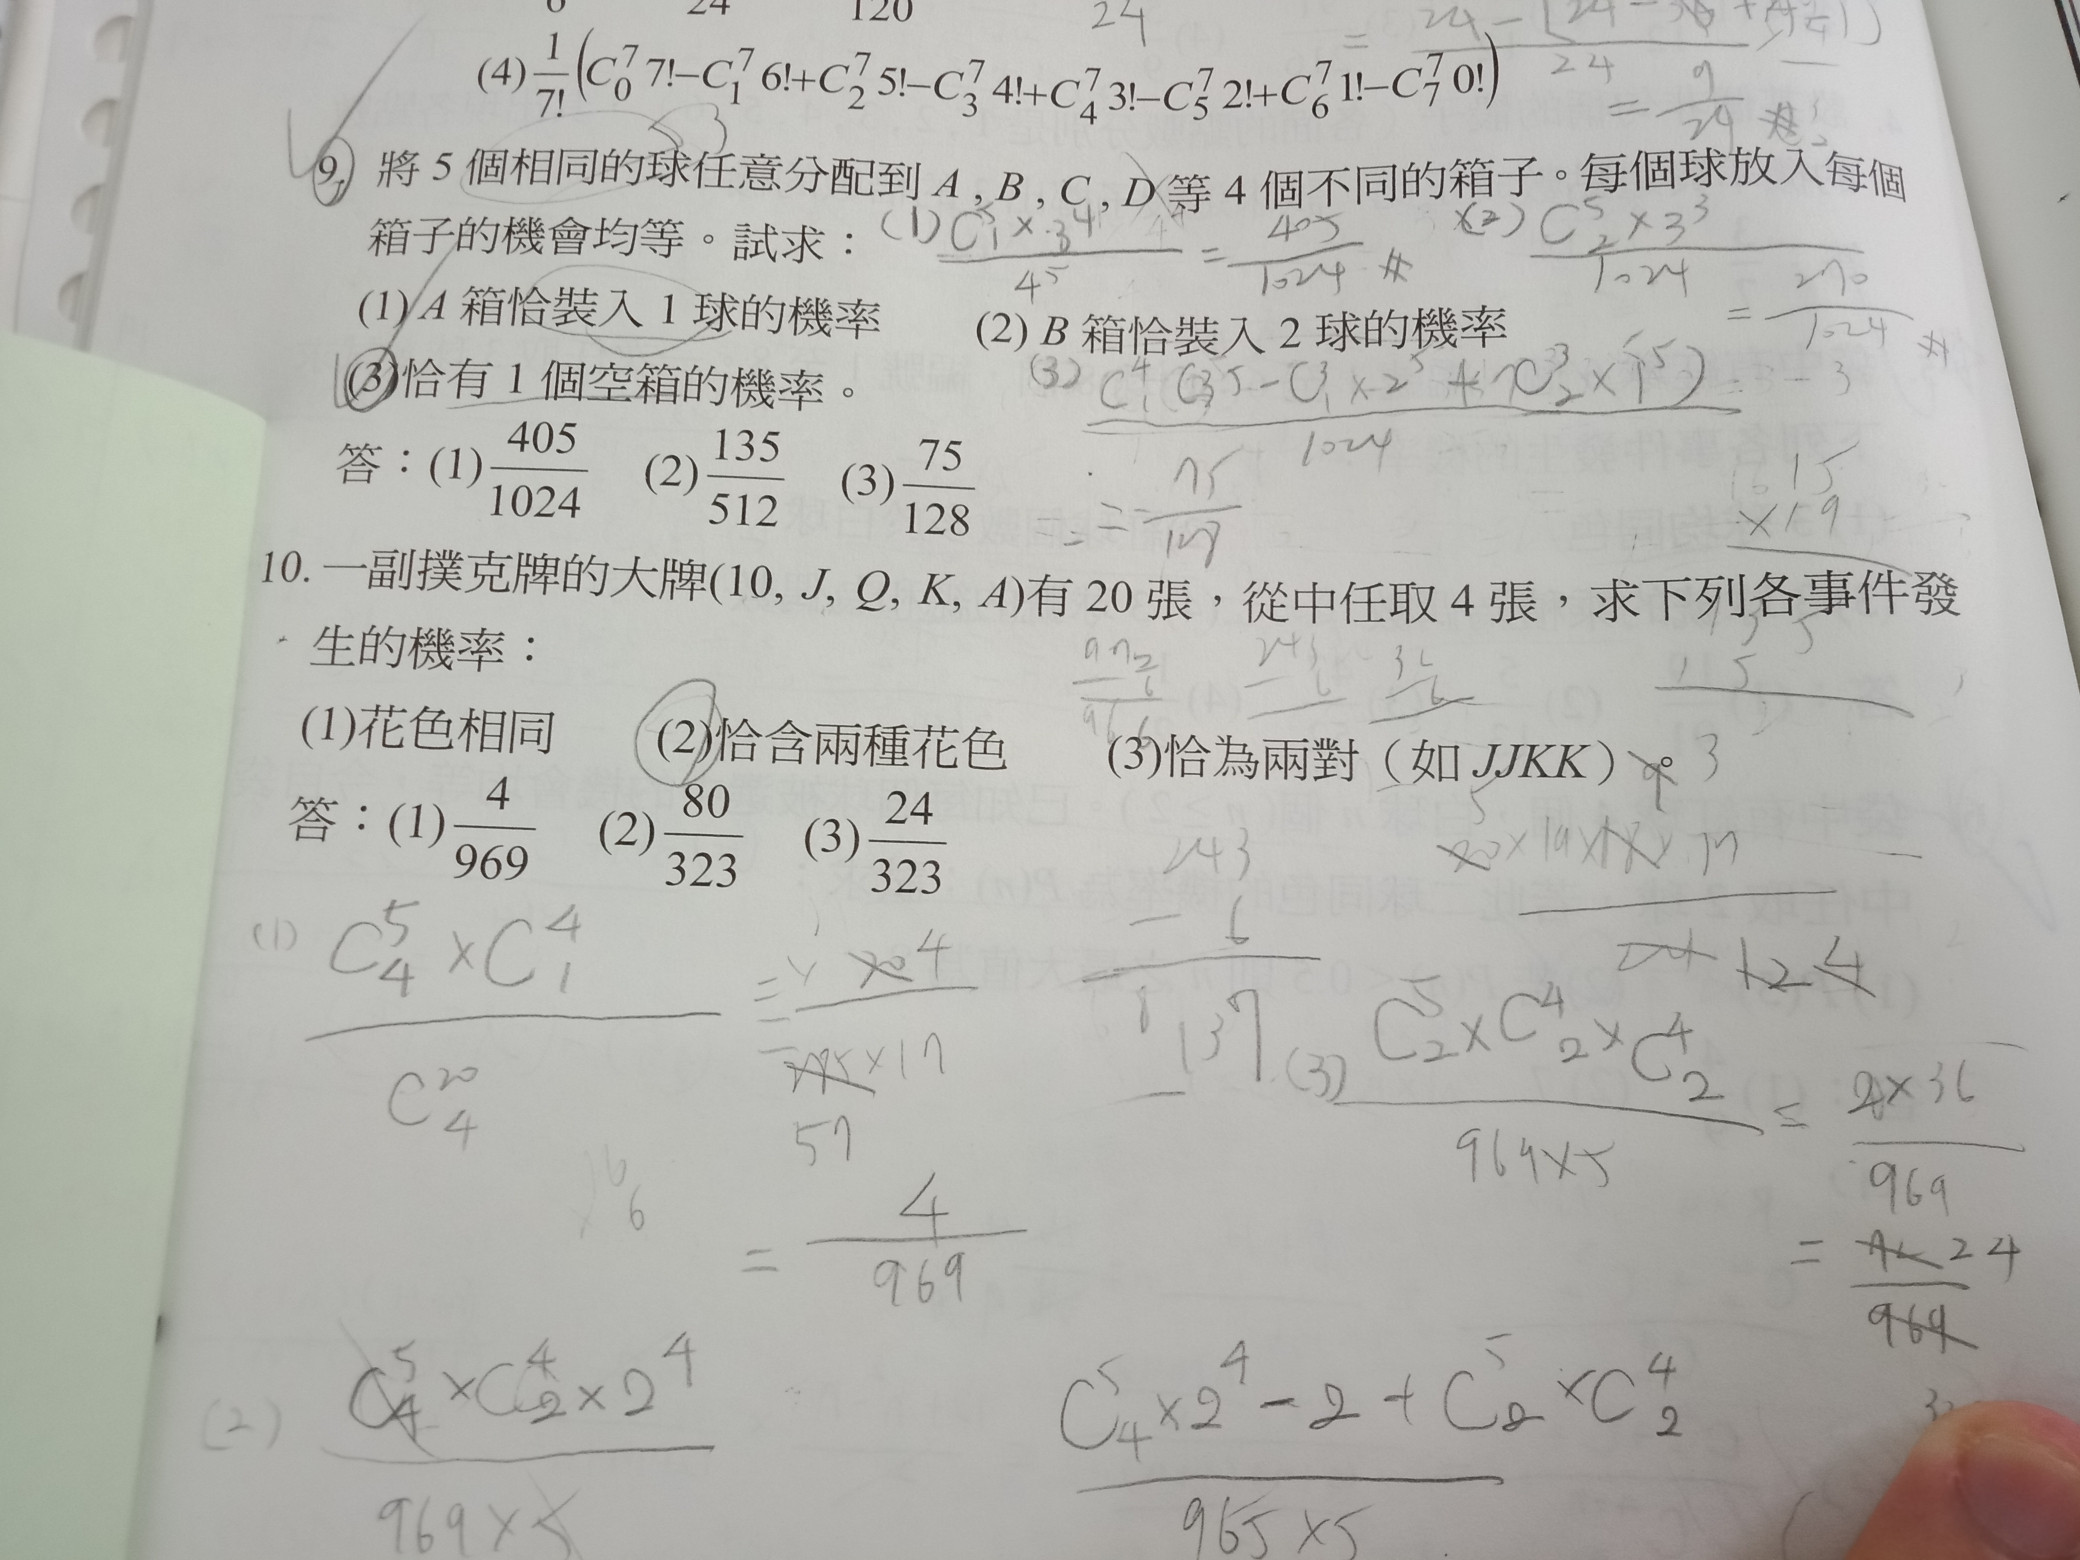 6 24 120 24
(4) 1/7! (C⁷₀ 7!−C⁷₁ 6!+C⁷₂ 5!−C⁷₃ 4!+C⁷₄ 3!−C⁷₅ 2!+C⁷₆ 1!−C⁷₇ 0!)
= 9/24 #
9. 將 5 個相同的球任意分配到 A , B , C , D 等 4 個不同的箱子。每個球放入每個
箱子的機會均等。試求：
(1) C⁵₁×3⁴/4⁵ = 405/1024 #
(2) C⁵₂×3³/1024 = 270/1024 #
(1) A 箱恰裝入 1 球的機率 (2) B 箱恰裝入 2 球的機率
(3)恰有 1 個空箱的機率。
(3) C⁴₁(3⁵−C³₁×2⁵+C³₂×1⁵)/1024
= 75/128
答：(1) 405/1024 (2) 135/512 (3) 75/128
15
×19
10. 一副撲克牌的大牌(10, J, Q, K, A)有 20 張，從中任取 4 張，求下列各事件發
生的機率：
(1)花色相同 (2)恰含兩種花色 (3)恰為兩對（如 JJKK）。
答：(1) 4/969 (2) 80/323 (3) 24/323
243
− 6
137
(1) C⁵₄×C⁴₁/C²⁰₄
57
= 4/969
(3) C⁵₂×C⁴₂×C⁴₂/969×5 = 2×36/969
24
(2) C⁵₄×C⁴₂×2⁴/969×5
C⁵₄×2⁴−2+C⁵₂×C⁴₂/965×5